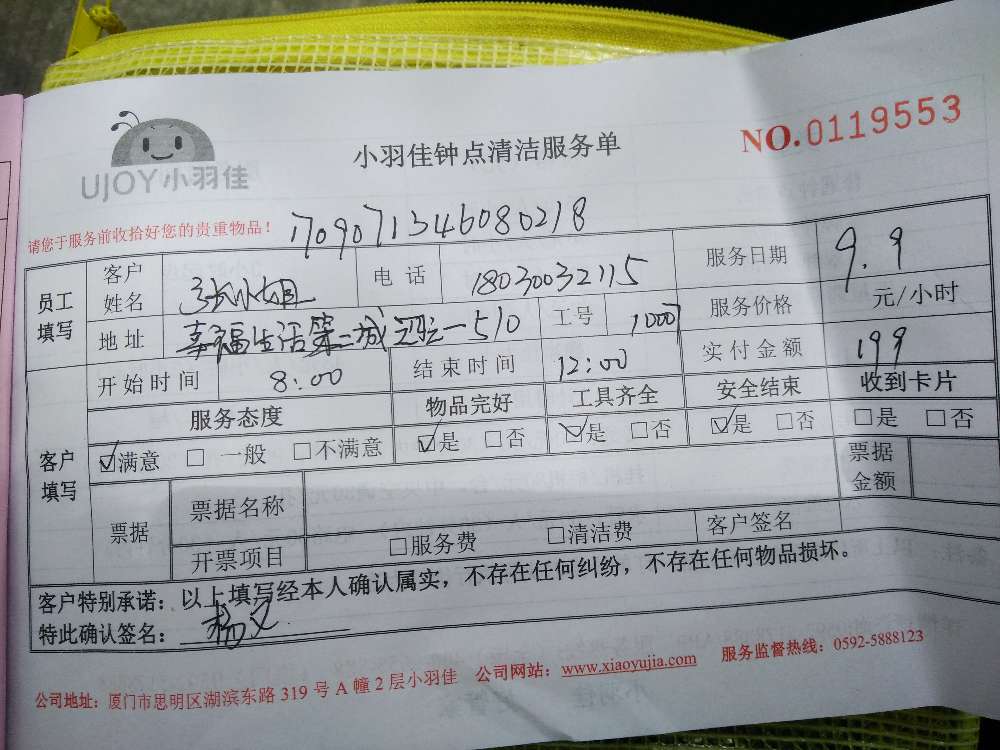 UJOY小羽佳
小羽佳钟点清洁服务单
NO.0119553
请您于服务前收拾好您的贵重物品！ 1709071346080218
员工填写 客户姓名 张小姐 电话 18030032115 服务日期 9.9
地址 幸福生活第二城 一510 工号 10007 服务价格 元/小时
客户填写 开始时间 8:00 结束时间 12:00 实付金额 199
服务态度 物品完好 工具齐全 安全结束 收到卡片
☑满意 □一般 □不满意 ☑是 □否 ☑是 □否 ☑是 □否 □是 □否
票据 票据名称 票据金额
开票项目 □服务费 □清洁费 客户签名
客户特别承诺：以上填写经本人确认属实，不存在任何纠纷，不存在任何物品损坏。
特此确认签名： 杨
公司地址：厦门市思明区湖滨东路 319 号 A 幢 2 层小羽佳 公司网站：www.xiaoyujia.com 服务监督热线：0592-5888123